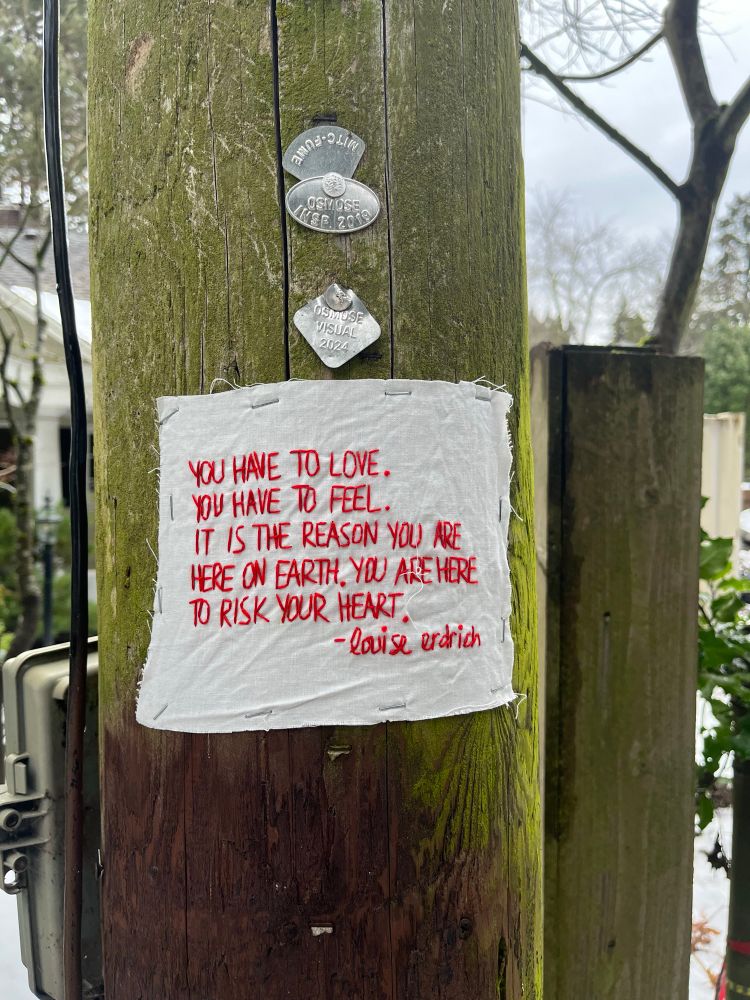 MITC-FUME
OSMOSE
INSP. 2019
OSMOSE
VISUAL
2024
YOU HAVE TO LOVE.
YOU HAVE TO FEEL.
IT IS THE REASON YOU ARE
HERE ON EARTH. YOU ARE HERE
TO RISK YOUR HEART.
-louise erdrich